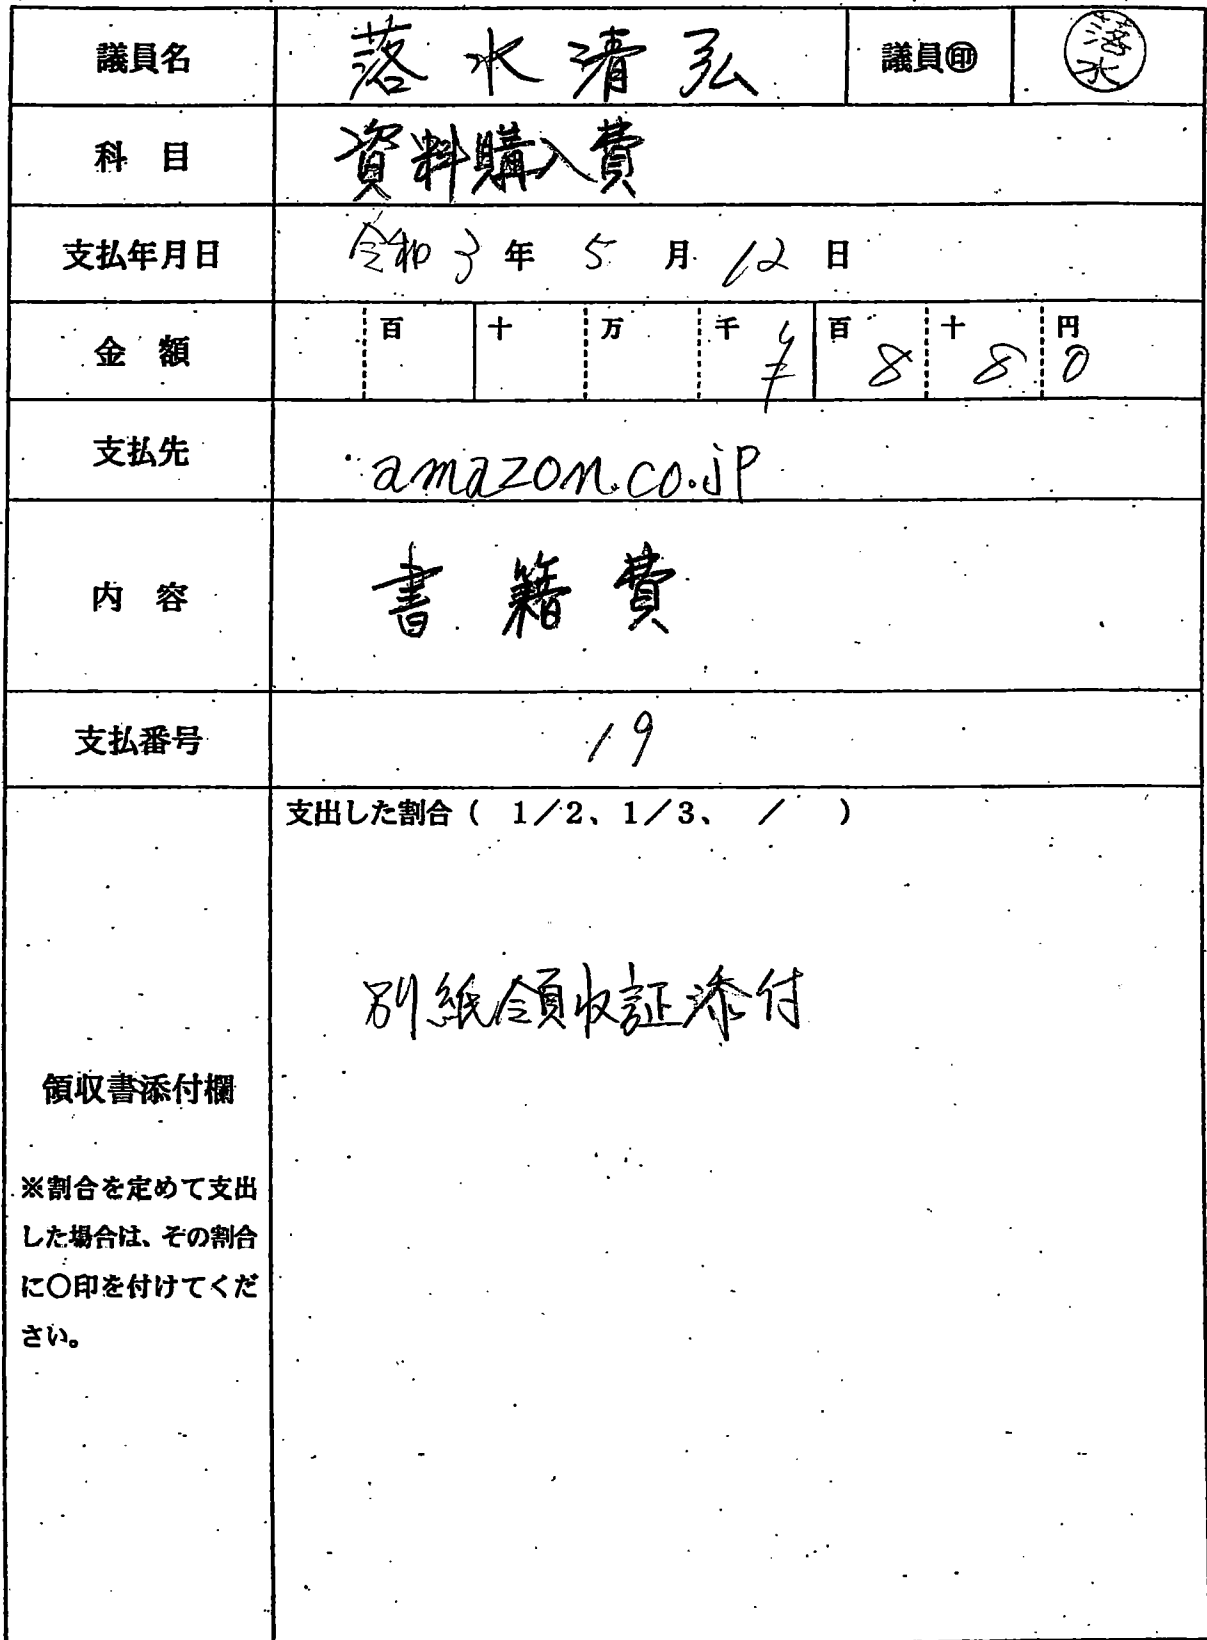 議員名 落水清弘 議員㊞ 落水
科 目 資料購入費
支払年月日 令和3年 5月 12日
金 額 百 十 万 千 ¥ 百 8 十 8 円 0
支払先 amazon.co.jp
内 容 書籍費
支払番号 19
支出した割合 ( 1/2、1/3、 / )
別紙領収証添付
領収書添付欄
※割合を定めて支出
した場合は、その割合
に○印を付けてくだ
さい。